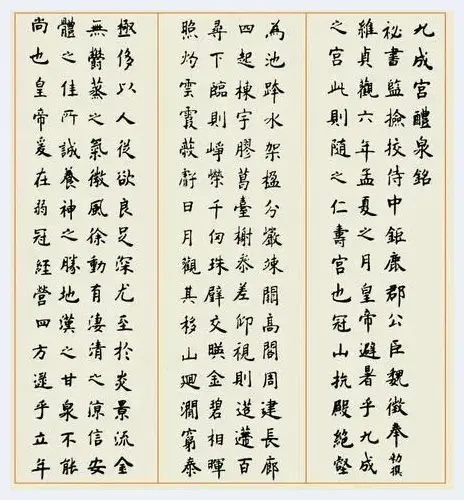 九成宮醴泉銘
秘書監撿挍侍中鉅鹿郡公臣魏徵奉勅撰
維貞觀六年孟夏之月皇帝避暑乎九成
之宮此則隨之仁壽宮也冠山抗殿絕壑
為池跨水架楹分巖竦闕高閣周建長廊
四起棟宇膠葛臺榭叅差仰視則迢遰百
尋下臨則崢嶸千仞珠璧交暎金碧相暉
照灼雲霞蔽虧日月觀其移山迴澗窮泰
極侈以人從欲良足深尤至於炎景流金
無鬱蒸之氣微風徐動有淒清之涼信安
體之佳所誠養神之勝地漢之甘泉不能
尚也皇帝爰在弱冠經營四方逮乎立年